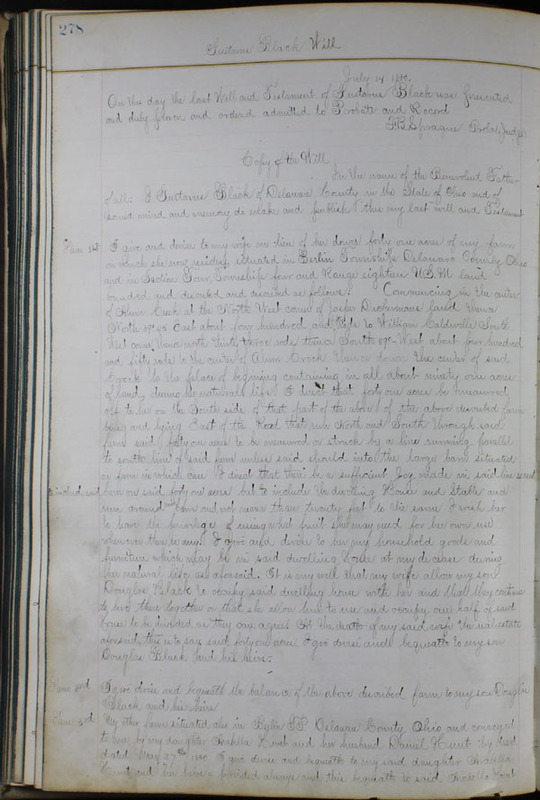 278
Gustavus Black Will
July 14 18
On this day the last Will and Testament of Gustavus Black was presented
and duly proven and ordered admitted to Probate and Record
F.B. Sprague Probate Judge
Copy of the Will
In the name of the Benevolent Father
of all. I Gustavus Black of Delaware County in the State of Ohio and of
sound mind and memory do make and publish this my last will and Testament
Item 1st I give and devise to my wife in lieu of her dower forty one acres of my farm
on which she now resides situated in Berlin Township Delaware County Ohio
and in Section Four, Township four and Range eighteen U.S.M. land
bounded and described as follows: Commencing in the center
of Alum Creek at the North West corner of Jasper land thence
North 87° East about four hundred and to William Caldwells South
West corner thence north thirty three rods thence South 87° West about four hundred
and fifty rods to the center of Alum Creek thence down the center of said
Creek to the place of begining containing in all about ninety one acres
of land, during her natural life. I direct that forty one acres be measured
off to her on the South side of that part of the above of the above described farm
being and lying East of the Road that runs North and South through said
farm said forty one acres to be measured or struck by a line running parallel
to south line of said farm unless said should into the large barn situated
on farm in which case I direct that there be a sufficient Jog made in said line
to include said barn in said forty one acres but to include the dwelling House and Stable and
run around and not nearer than twenty feet to the same I wish her
to have the privilege of using what fruit she may need for her own use
whenever there is any. I give and devise to her my household goods and
furniture which may be in said dwelling House at my decease during
her natural life as aforesaid. It is my will that my wife allow my son
Douglas Black to occupy said dwelling house with her and that they continue
to live there together or that she allow him to use and occupy one half of said
house to be divided as they can agree. At the death of my said wife the real estate
aforesaid, that is to say said forty one acres I give devise and bequeath to my son
Douglas Black and his heirs.
Item 2nd I give devise and bequeath the balance of the above described farm to my son Douglas
Black and his heirs
Item 3rd My other farm situated also in Berlin T.P. Delaware County, Ohio and conveyed
to me by my daughter and her husband Daniel by deed
dated May 27th I give devise and bequeath to my said daughter
and her heirs provided always and this bequeath to said